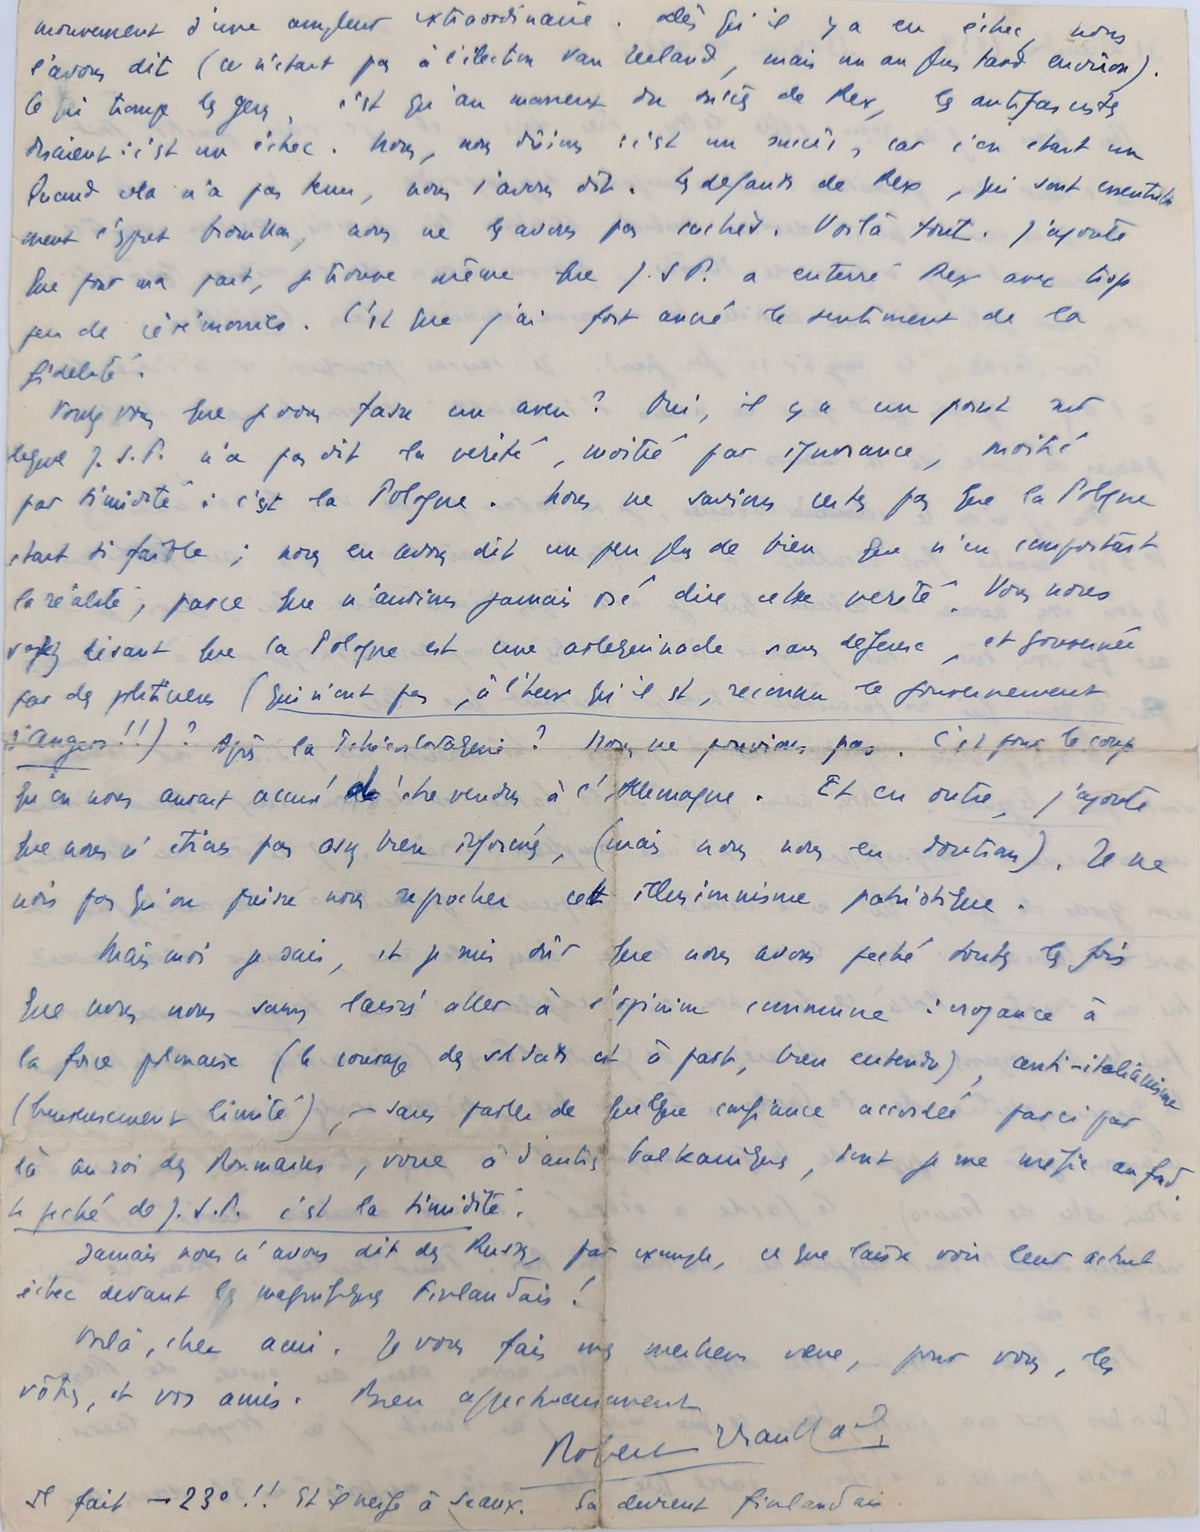 mouvement d'une ampleur extraordinaire. Dès qu'il y a eu échec, nous
l'avons dit (ce n'étant pas à l'élection Van Zeeland, mais un an plus tard environ).
Ce qui trompe les gens, c'est qu'au moment du succès de Rex, les antifascistes
disaient : c'est un échec. Nous, nous disions : c'est un succès, car c'en était un
Quand cela n'a pas tenu, nous l'avons dit. Les défauts de Rex, qui sont essentielle
ment l'esprit brouillon, nous ne les avons pas cachés. Voilà tout. J'ajoute
que pour ma part, je trouve même que J.S.P. a enterré Rex avec trop
peu de cérémonies. C'est que j'ai fort ancré le sentiment de la
fidélité.
Voulez vous que je vous fasse un aveu ? Oui, il y a un point sur
lequel J.S.P. n'a pas dit la vérité, moitié par ignorance, moitié
par timidité : c'est la Pologne. Nous ne savions certes pas que la Pologne
était si faible ; nous en avons dit un peu plus de bien que n'en comportait
la réalité, parce que n'aurions jamais osé dire cette vérité. Vous nous
voyez disant que la Pologne est une arlequinade sans défense, et gouvernée
par des politiciens (qui n'ont pas, à l'heure qu'il est, reconnu le gouvernement
d'Angers !!) ? Après la Tchécoslovaquie ? Nous ne pouvions pas. C'est pour le coup
qu'on nous aurait accusé d'être vendus à l'Allemagne. Et en outre, j'ajoute
que nous n'étions pas assez bien informés, (mais nous nous en doutions). Je ne
crois pas qu'on puisse nous reprocher cet illusionnisme patriotique.
Mais moi je sais, et je suis sûr que nous avons péché toutes les fois
que nous nous sommes laissés aller à l'opinion commune : croyance à
la force polonaise (le courage des soldats est à part, bien entendu), anti-italianisme
(heureusement limité), – sans parler de quelque confiance accordée par ci par
là au roi des Roumains, voire à d'autres balkaniques, dont je me méfie au fond.
Le péché de J.S.P. c'est la timidité.
Jamais nous n'avons dit des Russes, par exemple, ce que laisse voir leur actuel
échec devant les magnifiques Finlandais !
Voilà, cher ami. Je vous fais mes meilleurs vœux, pour vous, les
vôtres, et vos amis. Bien affectueusement
Robert Brasillach
Il fait – 23° !! Et il neige à seaux. Ça devient finlandais.